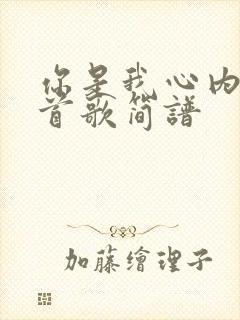 你是我心内
首歌简谱
加藤繪理子